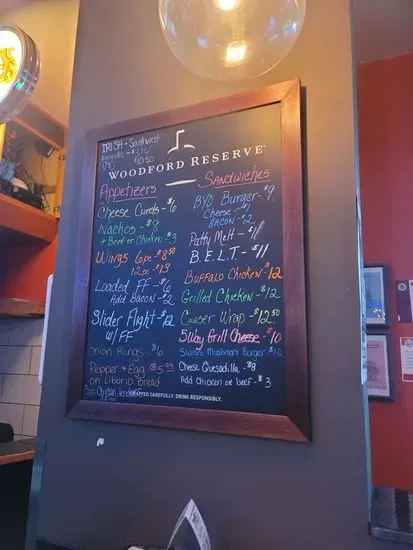 IRISH + Southwest
Eggrolls
$10.50
WOODFORD RESERVE
Appetizers
Cheese Curds - $6
Nachos - $8
+ Beef or Chicken - $3
Wings 6pc - $8.50
12pc - $13
Loaded FF - $6
Add Bacon - $2
Slider Flight - $12
w/ FF
Onion Rings - $6
Pepper + Egg @ 5.99
on Liborio Bread
Sandwiches
BYO Burger - $9
Cheese
Bacon - $2
Patty Melt - $11
B.E.L.T. - $11
Buffalo Chicken - $12
Grilled Chicken - $12
Wrap - $12.50
5Way Grill Cheese - $10
Swiss Mushroom Burger $12
Cheese Quesadilla - $8
Add Chicken or beef - $3
CRAFTED CAREFULLY. DRINK RESPONSIBLY.